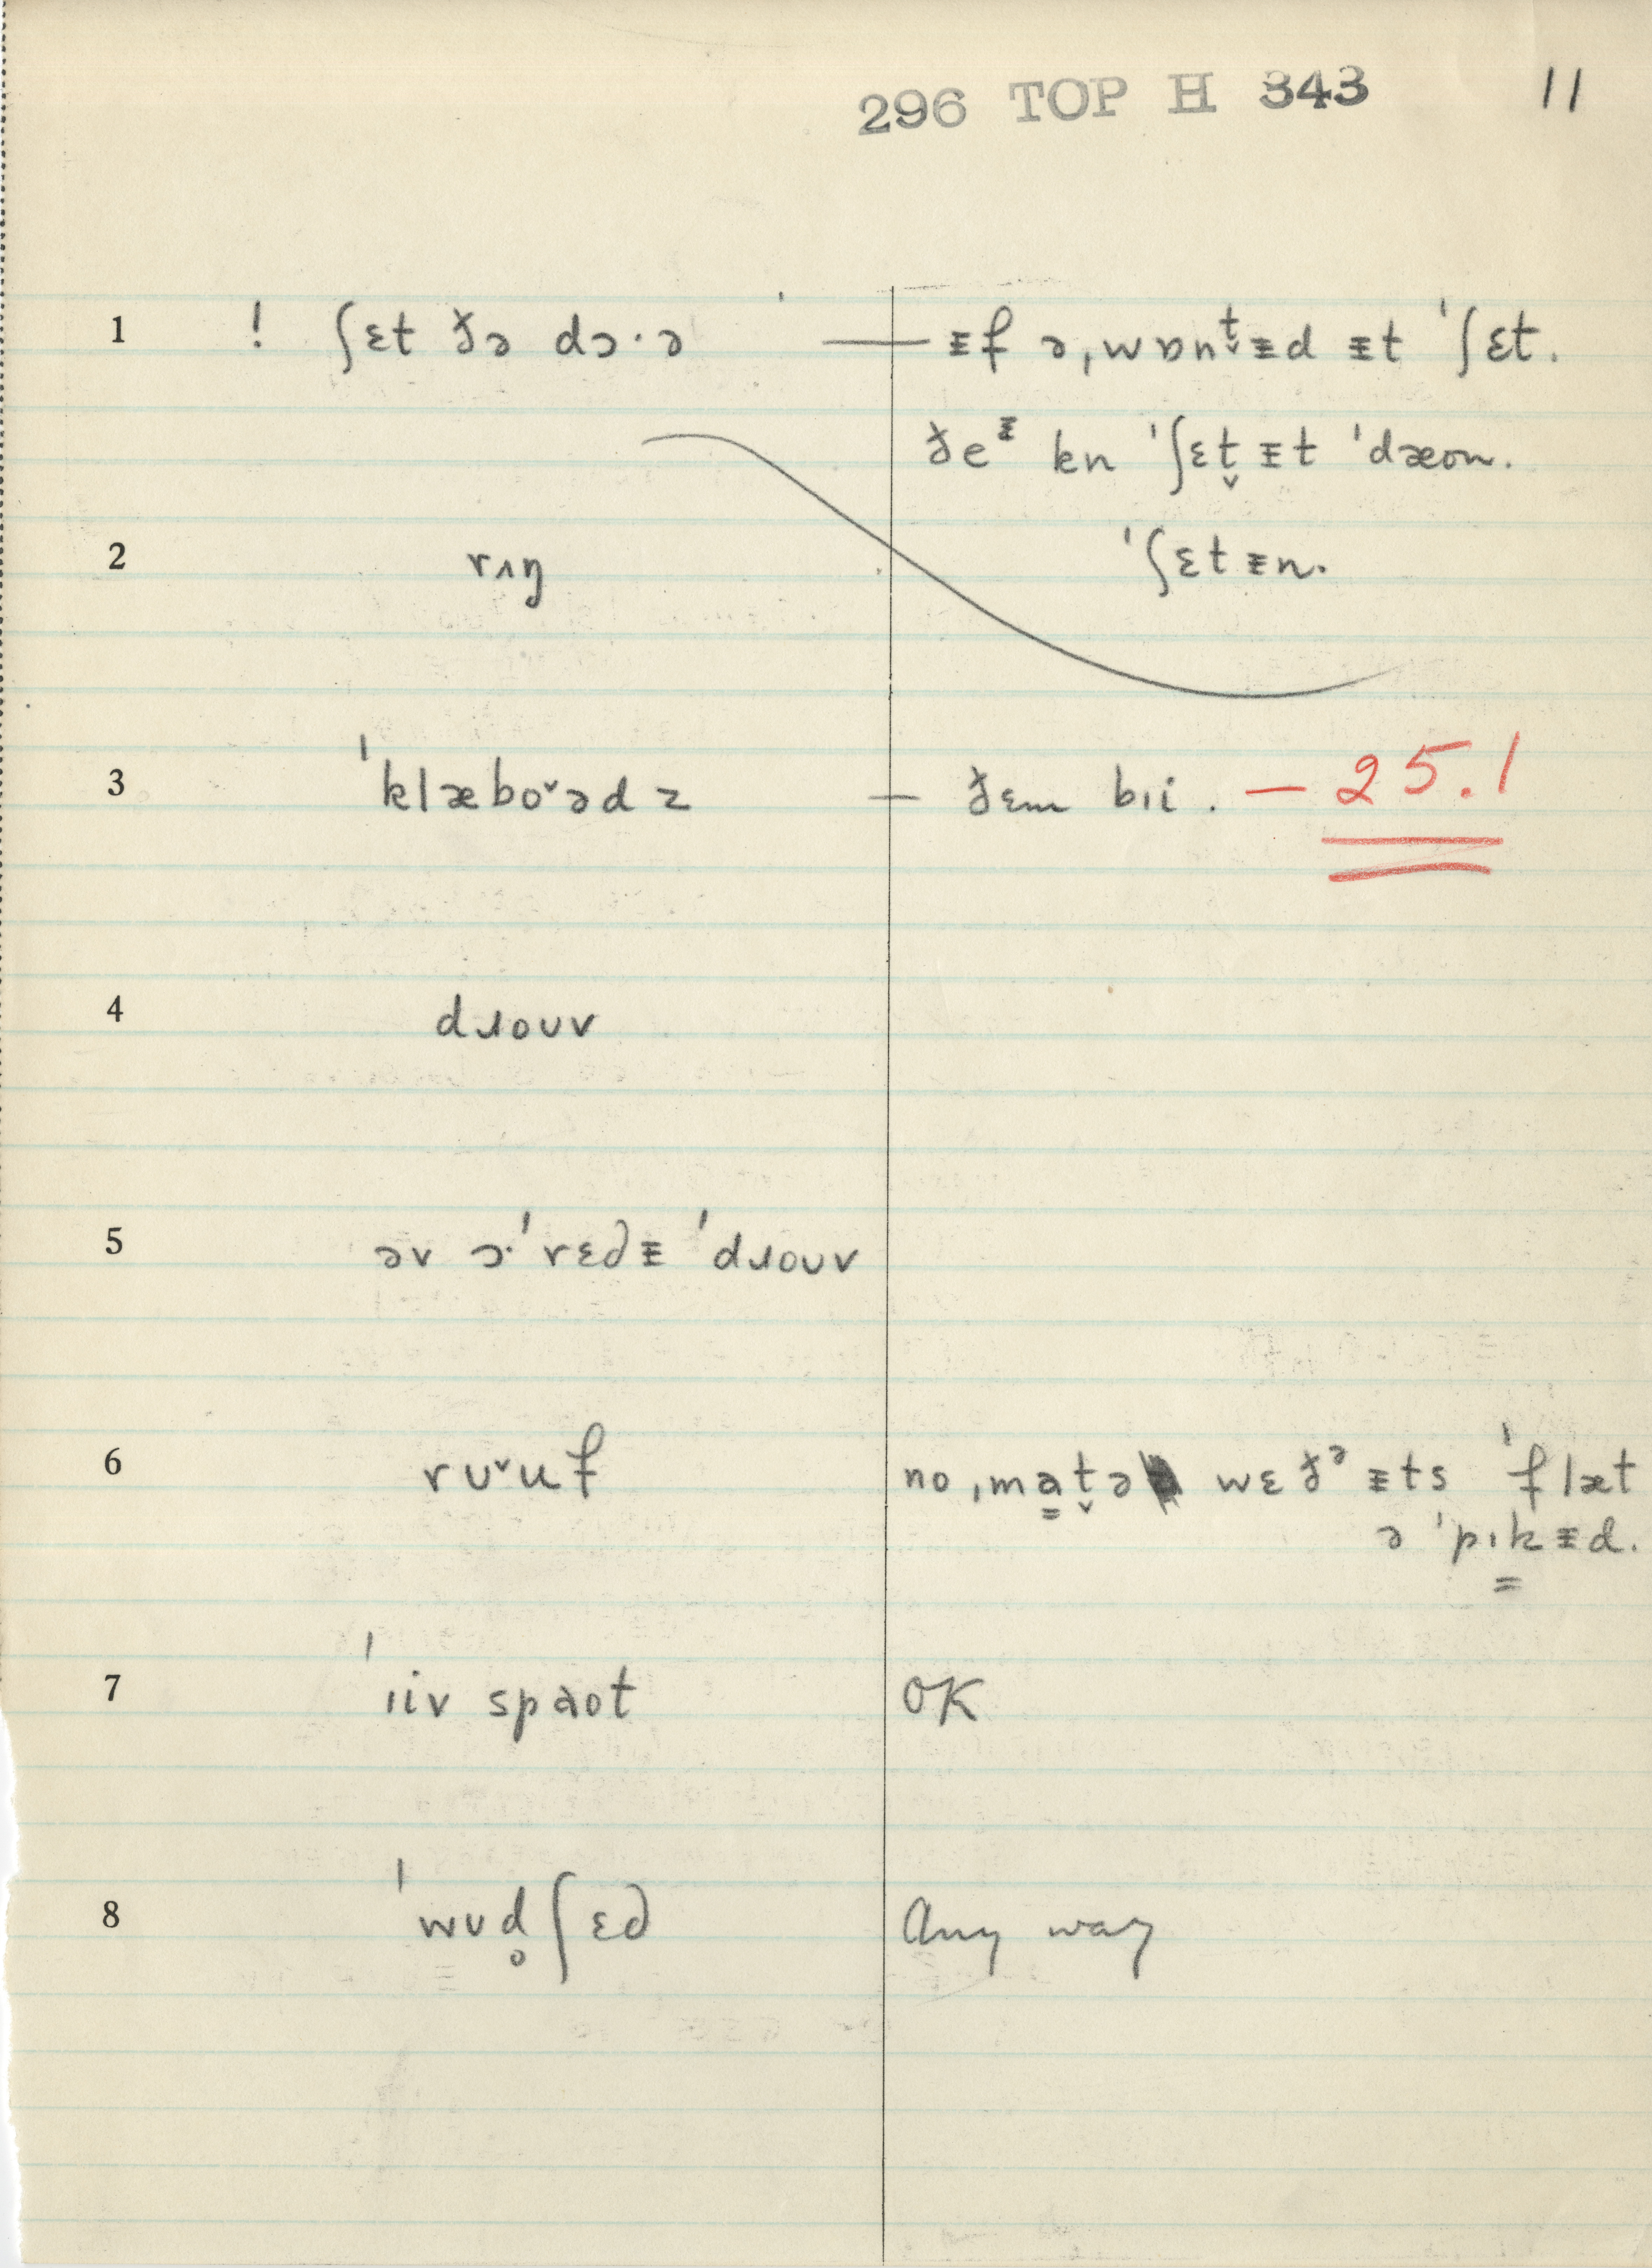 296 TOP H 343 11
1 ! ʃɛt ðə dɔ·ə ˈ — ᵻf ə ˌwɒnt̬ᵻd ᵻt ˈʃɛt.
ðeᵻ kn ˈʃɛt̬ ᵻt ˈdæon.
2 rʌŋ ˈʃɛt ᵻn.
3 ˈklæboˇədz — ðɛm bɪi. — 25.1
4 dɹoʊv
5 əv ɔ·ˈrɛdᵻ ˈdɹoʊv
6 rʊˇuf no ˌmat̬ə wɛðᵊ ᵻts ˈflæt
ə ˈpɪkᵻd.
7 ˈɪiv spaot OK
8 ˈwʊd̥ʃɛd Any way